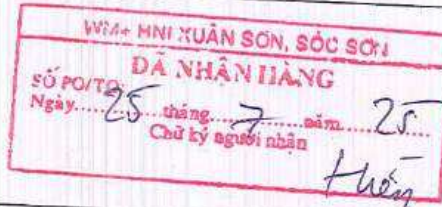 WM+ HNI XUÂN SƠN, SÓC SƠN
ĐÃ NHẬN HÀNG
SỐ PO/TO:
Ngày 25 tháng 7 năm 25
Chữ ký người nhận
Hiền